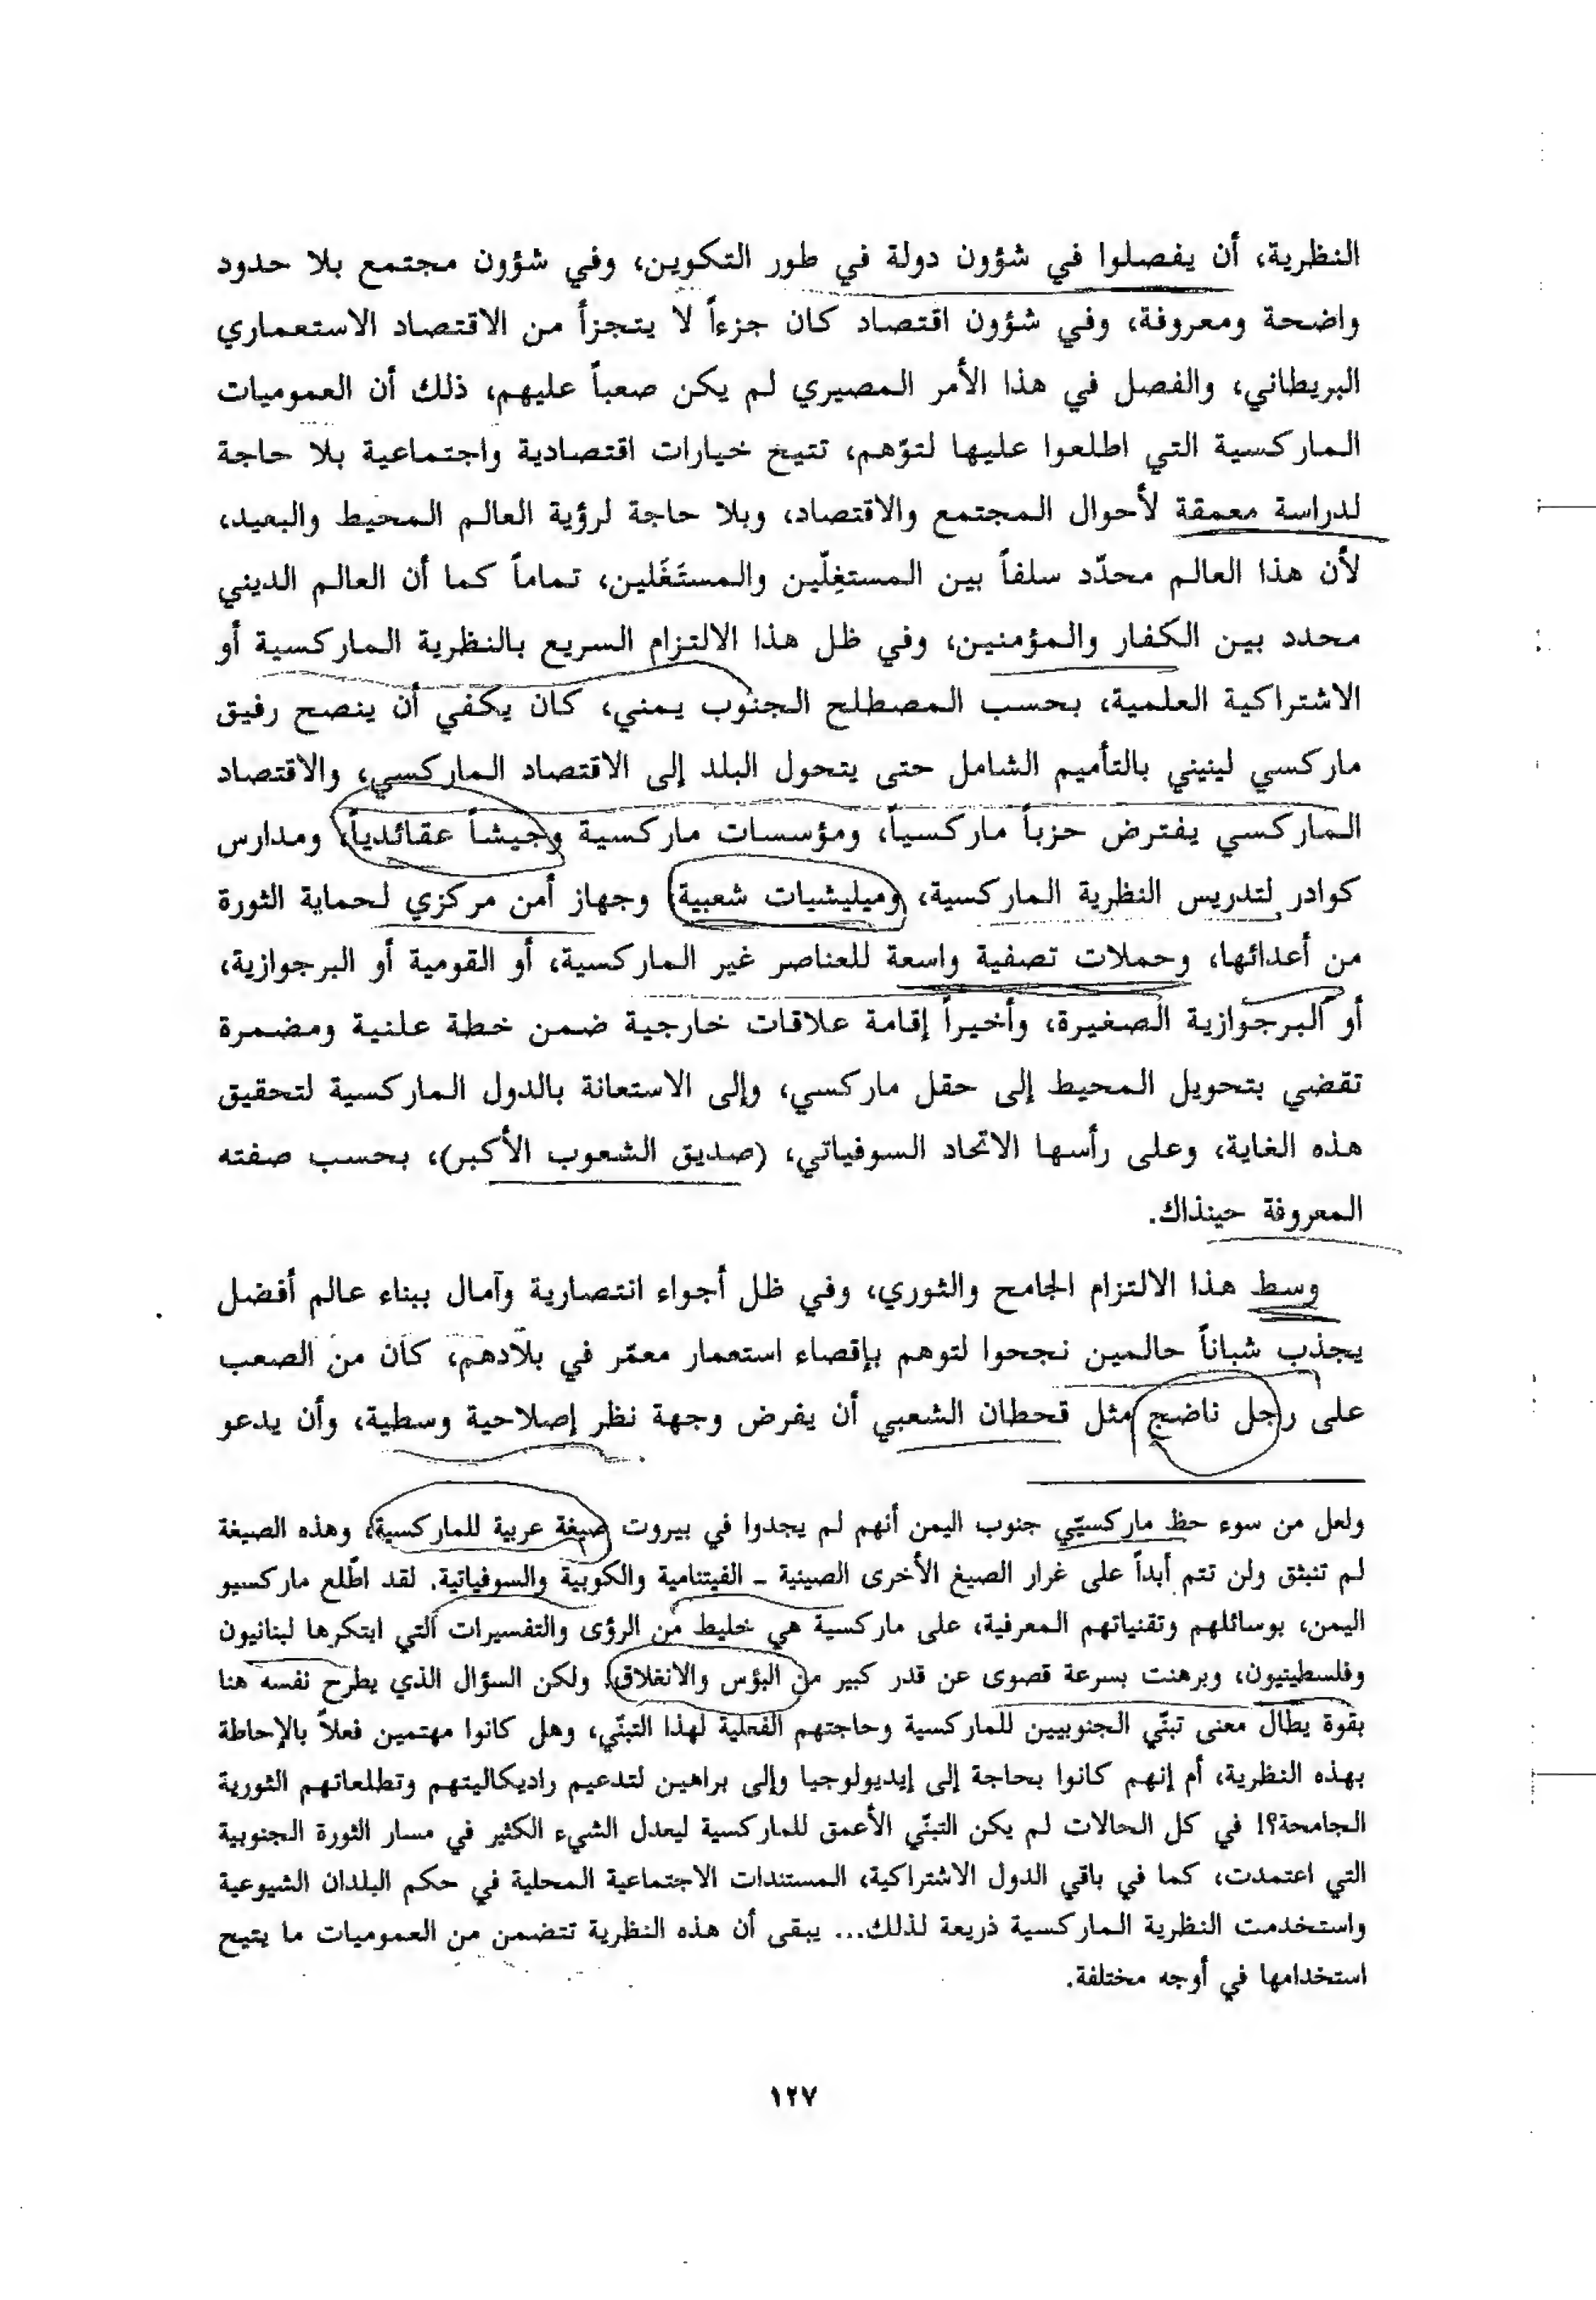 النظرية، أن يفصلوا في شؤون دولة في طور التكوين، وفي شؤون مجتمع بلا حدود
واضحة ومعروفة، وفي شؤون اقتصاد كان جزءاً لا يتجزأ من الاقتصاد الاستعماري
البريطاني، والفصل في هذا الأمر المصيري لم يكن صعباً عليهم، ذلك أن العموميات
الماركسية التي اطلعوا عليها لتوّهم، تتيح خيارات اقتصادية واجتماعية بلا حاجة
لدراسة معمقة لأحوال المجتمع والاقتصاد، وبلا حاجة لرؤية العالم المحيط والبعيد،
لأن هذا العالم محدّد سلفاً بين المستغِلّين والمستَغَلين، تماماً كما أن العالم الديني
محدد بين الكفار والمؤمنين، وفي ظل هذا الالتزام السريع بالنظرية الماركسية أو
الاشتراكية العلمية، بحسب المصطلح الجنوب يمني، كان يكفي أن ينصح رفيق
ماركسي لينيني بالتأميم الشامل حتى يتحول البلد إلى الاقتصاد الماركسي، والاقتصاد
الماركسي يفترض حزباً ماركسياً، ومؤسسات ماركسية وجيشاً عقائدياً، ومدارس
كوادر لتدريس النظرية الماركسية، وميليشيات شعبية، وجهاز أمن مركزي لحماية الثورة
من أعدائها، وحملات تصفية واسعة للعناصر غير الماركسية، أو القومية أو البرجوازية،
أو البرجوازية الصغيرة، وأخيراً إقامة علاقات خارجية ضمن خطة علنية ومضمرة
تقضي بتحويل المحيط إلى حقل ماركسي، وإلى الاستعانة بالدول الماركسية لتحقيق
هذه الغاية، وعلى رأسها الاتحاد السوفياتي، (صديق الشعوب الأكبر)، بحسب صفته
المعروفة حينذاك.
وسط هذا الالتزام الجامح والثوري، وفي ظل أجواء انتصارية وآمال ببناء عالم أفضل
يجذب شباناً حالمين نجحوا لتوهم بإقصاء استعمار معمّر في بلادهم، كان من الصعب
على رجل ناضج مثل قحطان الشعبي أن يفرض وجهة نظر إصلاحية وسطية، وأن يدعو
ولعل من سوء حظ ماركسيّي جنوب اليمن أنهم لم يجدوا في بيروت صيغة عربية للماركسية، وهذه الصيغة
لم تنبثق ولن تتم أبداً على غرار الصيغ الأخرى الصينية - الفيتنامية والكوبية والسوفياتية. لقد اطّلع ماركسيو
اليمن، بوسائلهم وتقنياتهم المعرفية، على ماركسية هي خليط من الرؤى والتفسيرات التي ابتكرها لبنانيون
وفلسطينيون، وبرهنت بسرعة قصوى عن قدر كبير من البؤس والانغلاق. ولكن السؤال الذي يطرح نفسه هنا
بقوة يطال معنى تبنّي الجنوبيين للماركسية وحاجتهم الفعلية لهذا التبنّي، وهل كانوا مهتمين فعلاً بالإحاطة
بهذه النظرية، أم إنهم كانوا بحاجة إلى إيديولوجيا وإلى براهين لتدعيم راديكاليتهم وتطلعاتهم الثورية
الجامحة؟! في كل الحالات لم يكن التبنّي الأعمق للماركسية ليعدل الشيء الكثير في مسار الثورة الجنوبية
التي اعتمدت، كما في باقي الدول الاشتراكية، المستندات الاجتماعية المحلية في حكم البلدان الشيوعية
واستخدمت النظرية الماركسية ذريعة لذلك... يبقى أن هذه النظرية تتضمن من العموميات ما يتيح
استخدامها في أوجه مختلفة.
١٢٧